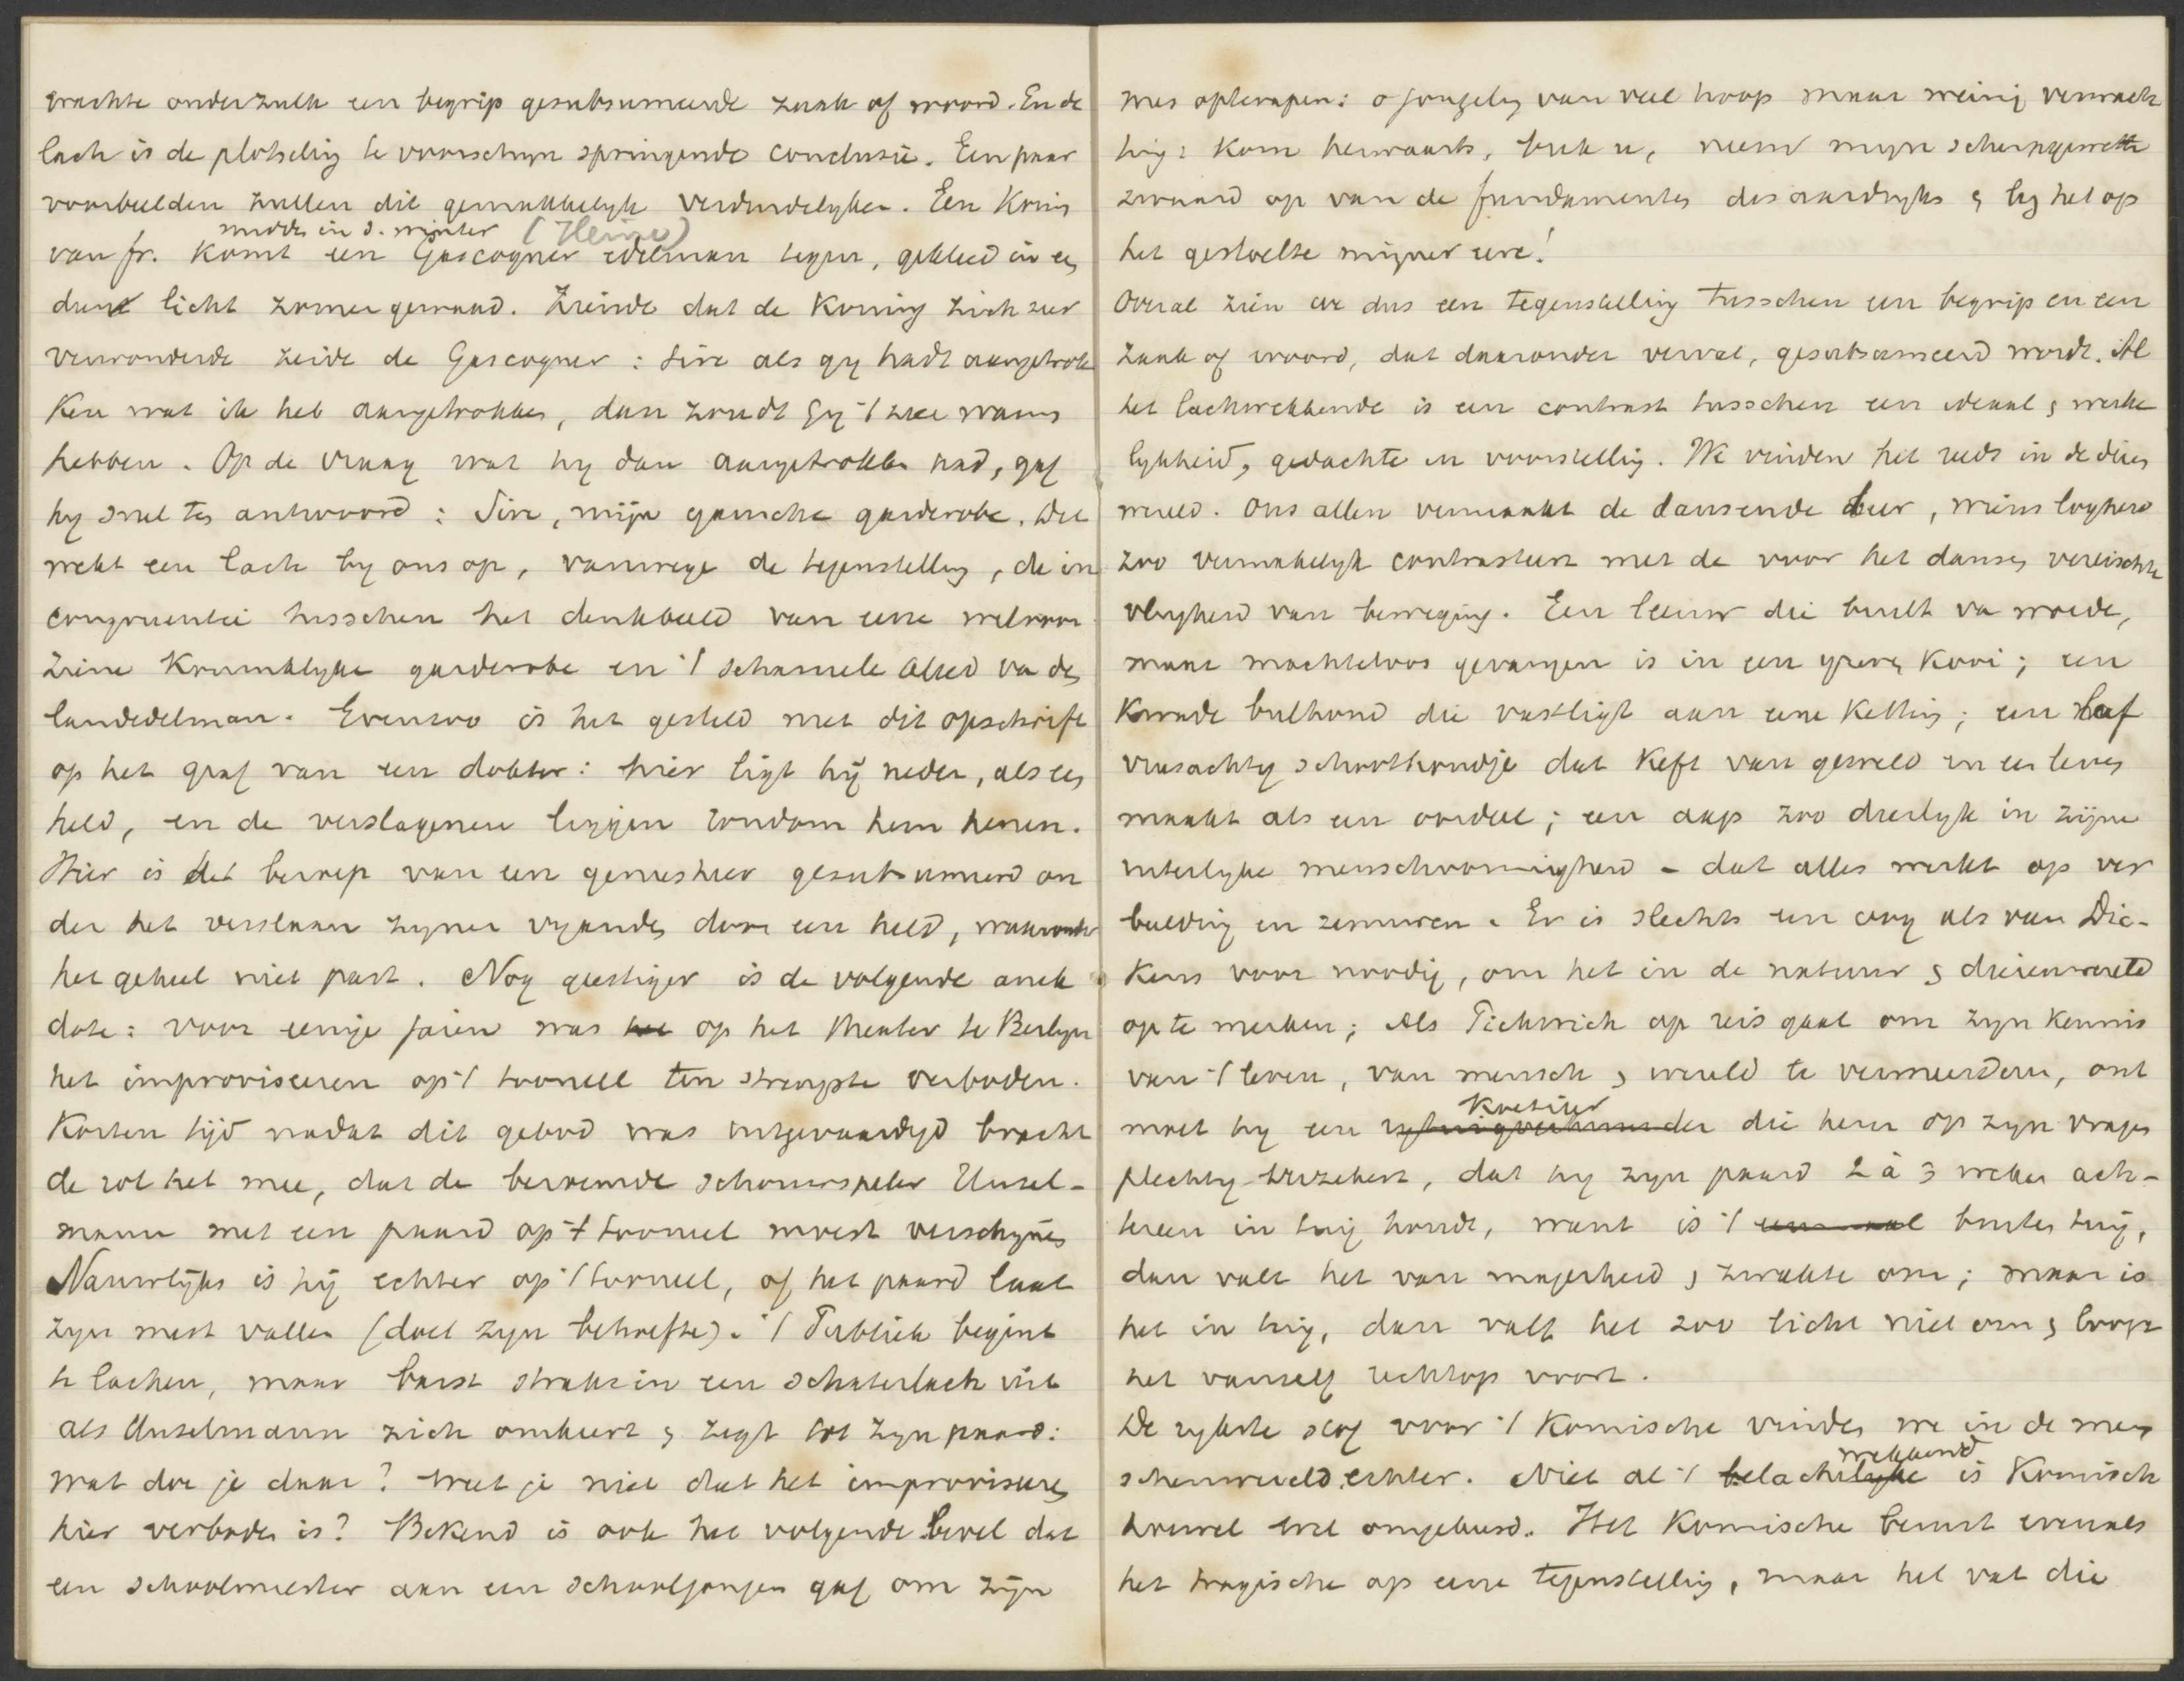 wachte onder zulk een begrip gesubsumeerde zaak of woord. En de
lach is de plotseling te voorschijn springende conclusie. Een paar
voorbeelden zullen dit gemakkelyk verduidelyken. Een Kring
midden in d. winter (Henri)
van fr. komt een Gascogner edelman tegen, gekleed in een
dun licht zomergewaad. Ziende dat de Koning zich zeer
verwonderde zeide de Gascogner: Sire als gy hadt aangetrok
ken wat ik heb aangetrokken, dan zoudt gy 't zeer warm
hebben. Op de vraag wat hy dan aangetrokken had, gaf
hy snel ten antwoord: Sire, mijn gansche garderobe. Dit
wekt een lach by ons op, vanwege de tegenstelling, de in
congruentie tusschen het denkbeeld van eene welvoor
ziene Koninklyke garderobe en 't schamele kleed va den
landedelman. Evenzoo is het gesteld met dit opschrift
op het graf van een dokter: hier ligt hij neder, als een
held, en de verslagenen liggen rondom hem henen.
Hier is het beroep van een geneesheer gesubsumeerd on
der het verslaan zyner vyanden door een held, waaronder
het geheel niet past. Nog geestiger is de volgende anek
dote: voor eenige jaren was het op het theater te Berlyn
het improviseeren op 't tooneel ten strengste verboden.
Korten tijd nadat dit gebod was uitgevaardigd bracht
de rol het mee, dat de beroemde schouwspeler Unzel-
mann met een paard op 't tooneel moest verschynen
Nauwlijks is hij echter op 't tooneel, of het paard laat
zyn mest vallen (doet zyn behoefte). 't Publiek begint
te lachen, maar barst straks in een schaterlach uit
als Unzelmann zich omkeert & zegt tot zyn paard:
wat doe je daar? weet je niet dat het improviseeren
hier verboden is? Bekend is ook het volgende bevel dat
een schoolmeester aan een schooljongen gaf om zijn
mes opterapen: o jongeling van veel hoop maar weinig verwach
ting: Kom herwaarts, buk u, neem myn scherpgewette
zwaard op van de fundamenten des aardryks & leg het op
het gestoelte mijner eere!
Overal zien we dus een tegenstelling tusschen een begrip en een
zaak of woord, dat daaronder vervat, gesubsumeerd wordt. Al
het lachwekkende is een contrast tusschen een ideaal & werke
lykheid, gedachte en voorstelling. We vinden het reeds in de dieren
wereld. Ons allen vermaakt de dansende beer, wiens logheid
zoo vermakelyk contrasteert met de voor het dansen vereischte
vlugheid van beweging. Een leeuw die brult va woede,
maar machteloos gevangen is in een yzeren kooi; een
Kwade bulhond die vastligt aan eene Ketting; een laf
vreesachtig schoothondje dat Keft van geweld en een leven
maakt als een oordeel; een aap zoo dierlyk in zijne
uiterlyke menschvormigheid – dat alles werkt op ver
beelding en zenuwen. Er is slechts een oog als van Dic-
kens voor noodig, om het in de natuur & dierenwereld
op te merken; Als Pickwick op reis gaat om zyn kennis
van 't leven, van mensch & wereld te vermeerderen, ont
koetsier
moet hy een die hem op zyn vragen
plechtig verzekert, dat hy zyn paard 2 à 3 weken ach-
tereen in tuig houdt, want is 't eenmaal buiten tuig,
dan valt het van magerheid & zwakte om; maar is
het in tuig, dan valt het zoo licht niet om & loopt
het vanzelf rechtop voort.
De rykste stof voor 't Komische vinden we in de men
wekkend
schenwereld echter. Niet al 't belachelyke is Komisch
hoewel wel omgekeerd. Het Komische berust evenals
het tragische op eene tegenstelling, maar het vat die